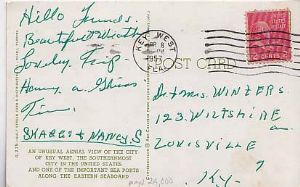 Hello Friends.
Beautiful Weather
Lovely Trip
Having a Glorious
Time.
SKAGGS + NANCY S
AN UNUSUAL AERIAL VIEW OF THE CITY
OF KEY WEST, THE SOUTHERNMOST
CITY IN THE UNITED STATES
AND ONE OF THE IMPORTANT SEA PORTS
ALONG THE EASTERN SEABOARD
KEY WEST
8
PM
FLA.
POST CARD
WINTERS
123. WILTSHIRE
LOUISVILLE
Ky.